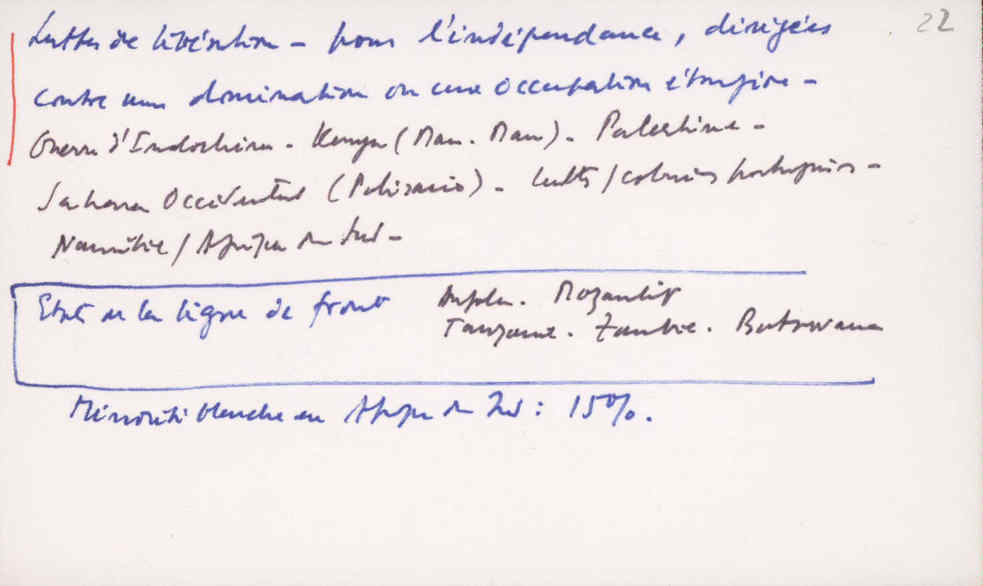 22
Luttes de libération – pour l'indépendance, dirigées
contre une domination ou une occupation étrangère –
Guerre d'Indochine. Kenya (Mau. Mau). Palestine –
Sahara Occidental (Polisario) – luttes / colonies portugaises –
Namibie / Afrique du Sud –
Etats de la ligne de front Angola. Mozambique
Tanzanie. Zambie. Botswana
Minorité blanche en Afrique du Sud : 15%.